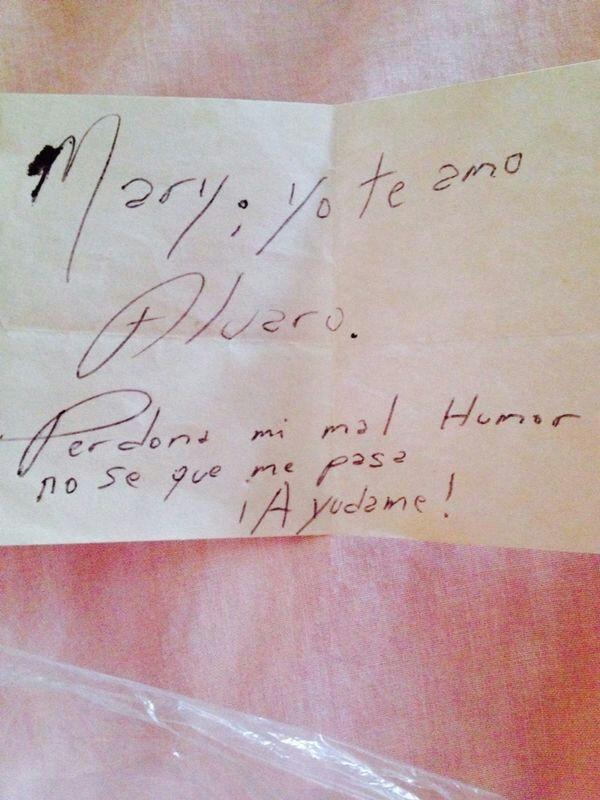 Mary; yo te amo
Alvaro.
Perdona mi mal Humor
no se que me pasa
¡Ayudame!